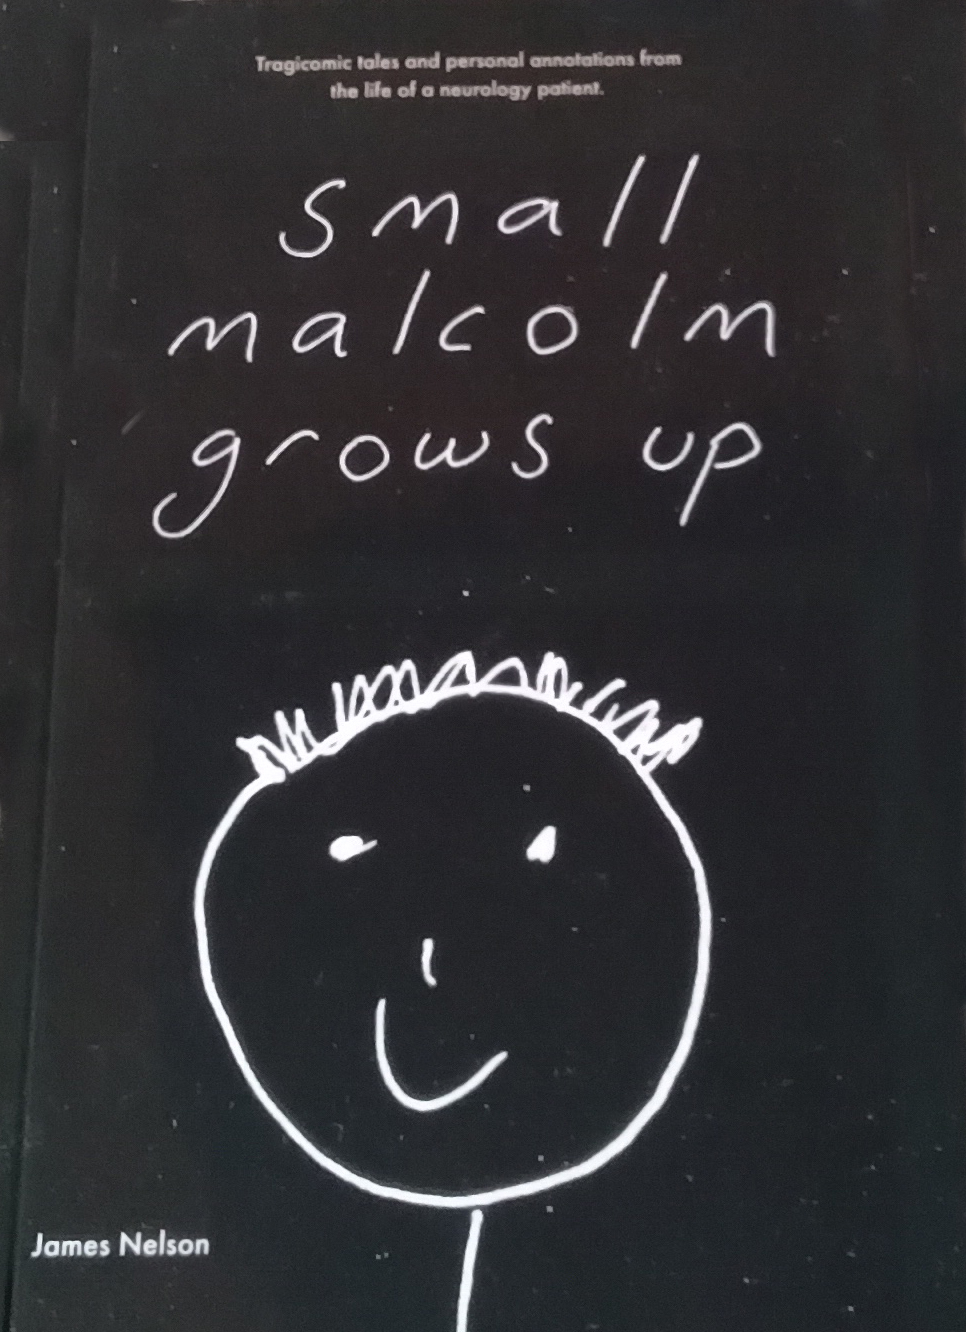 Tragicomic tales and personal annotations from
the life of a neurology patient.
small
malcolm
grows up
James Nelson